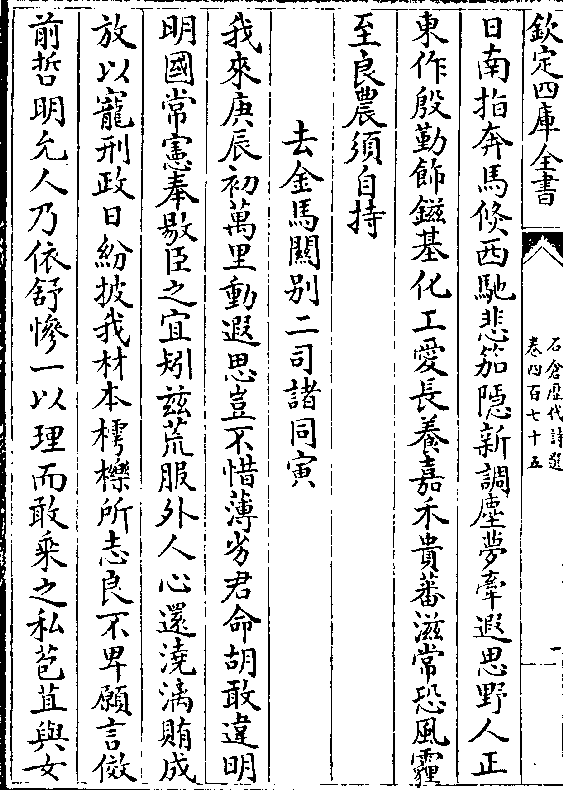 欽定四庫全書
石倉歴代詩選
卷四百七十五
日南指奔馬倐西馳悲笳隱新調塵夢牽遐思野人正
東作殷勤飾鎡基化工愛長養嘉禾貴蕃滋常恐風霾
至良農須自持
去金馬關别二司諸同寅
我來庚辰初萬里動遐思豈不惜薄劣君命胡敢違明
明國常憲奉敭臣之宜矧兹荒服外人心還澆漓賄成
放以寵刑政日紛披我材本樗櫟所志良不卑願言倣
前哲明允人乃依舒慘一以理而敢乘之私苞苴與女